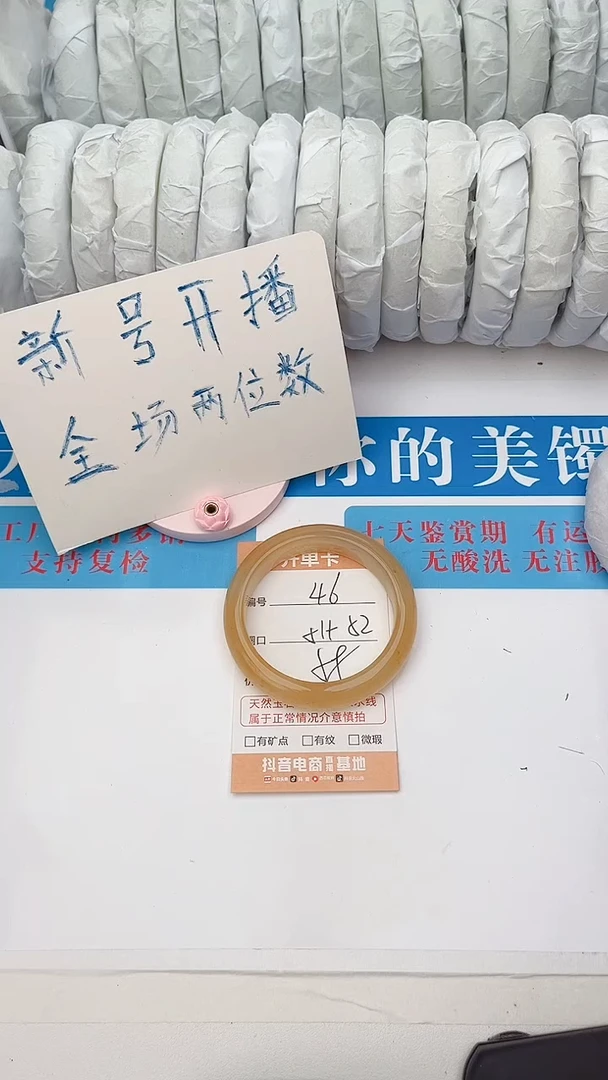 新号开播
全场两位数
你的美镯
支持复检
七天鉴赏期 有运
无酸洗 无注胶
开单卡
编号 46
圈口 51+52
58
天然玉
水线
属于正常情况介意慎拍
□有矿点 □有纹 □微瑕
抖音电商直播基地